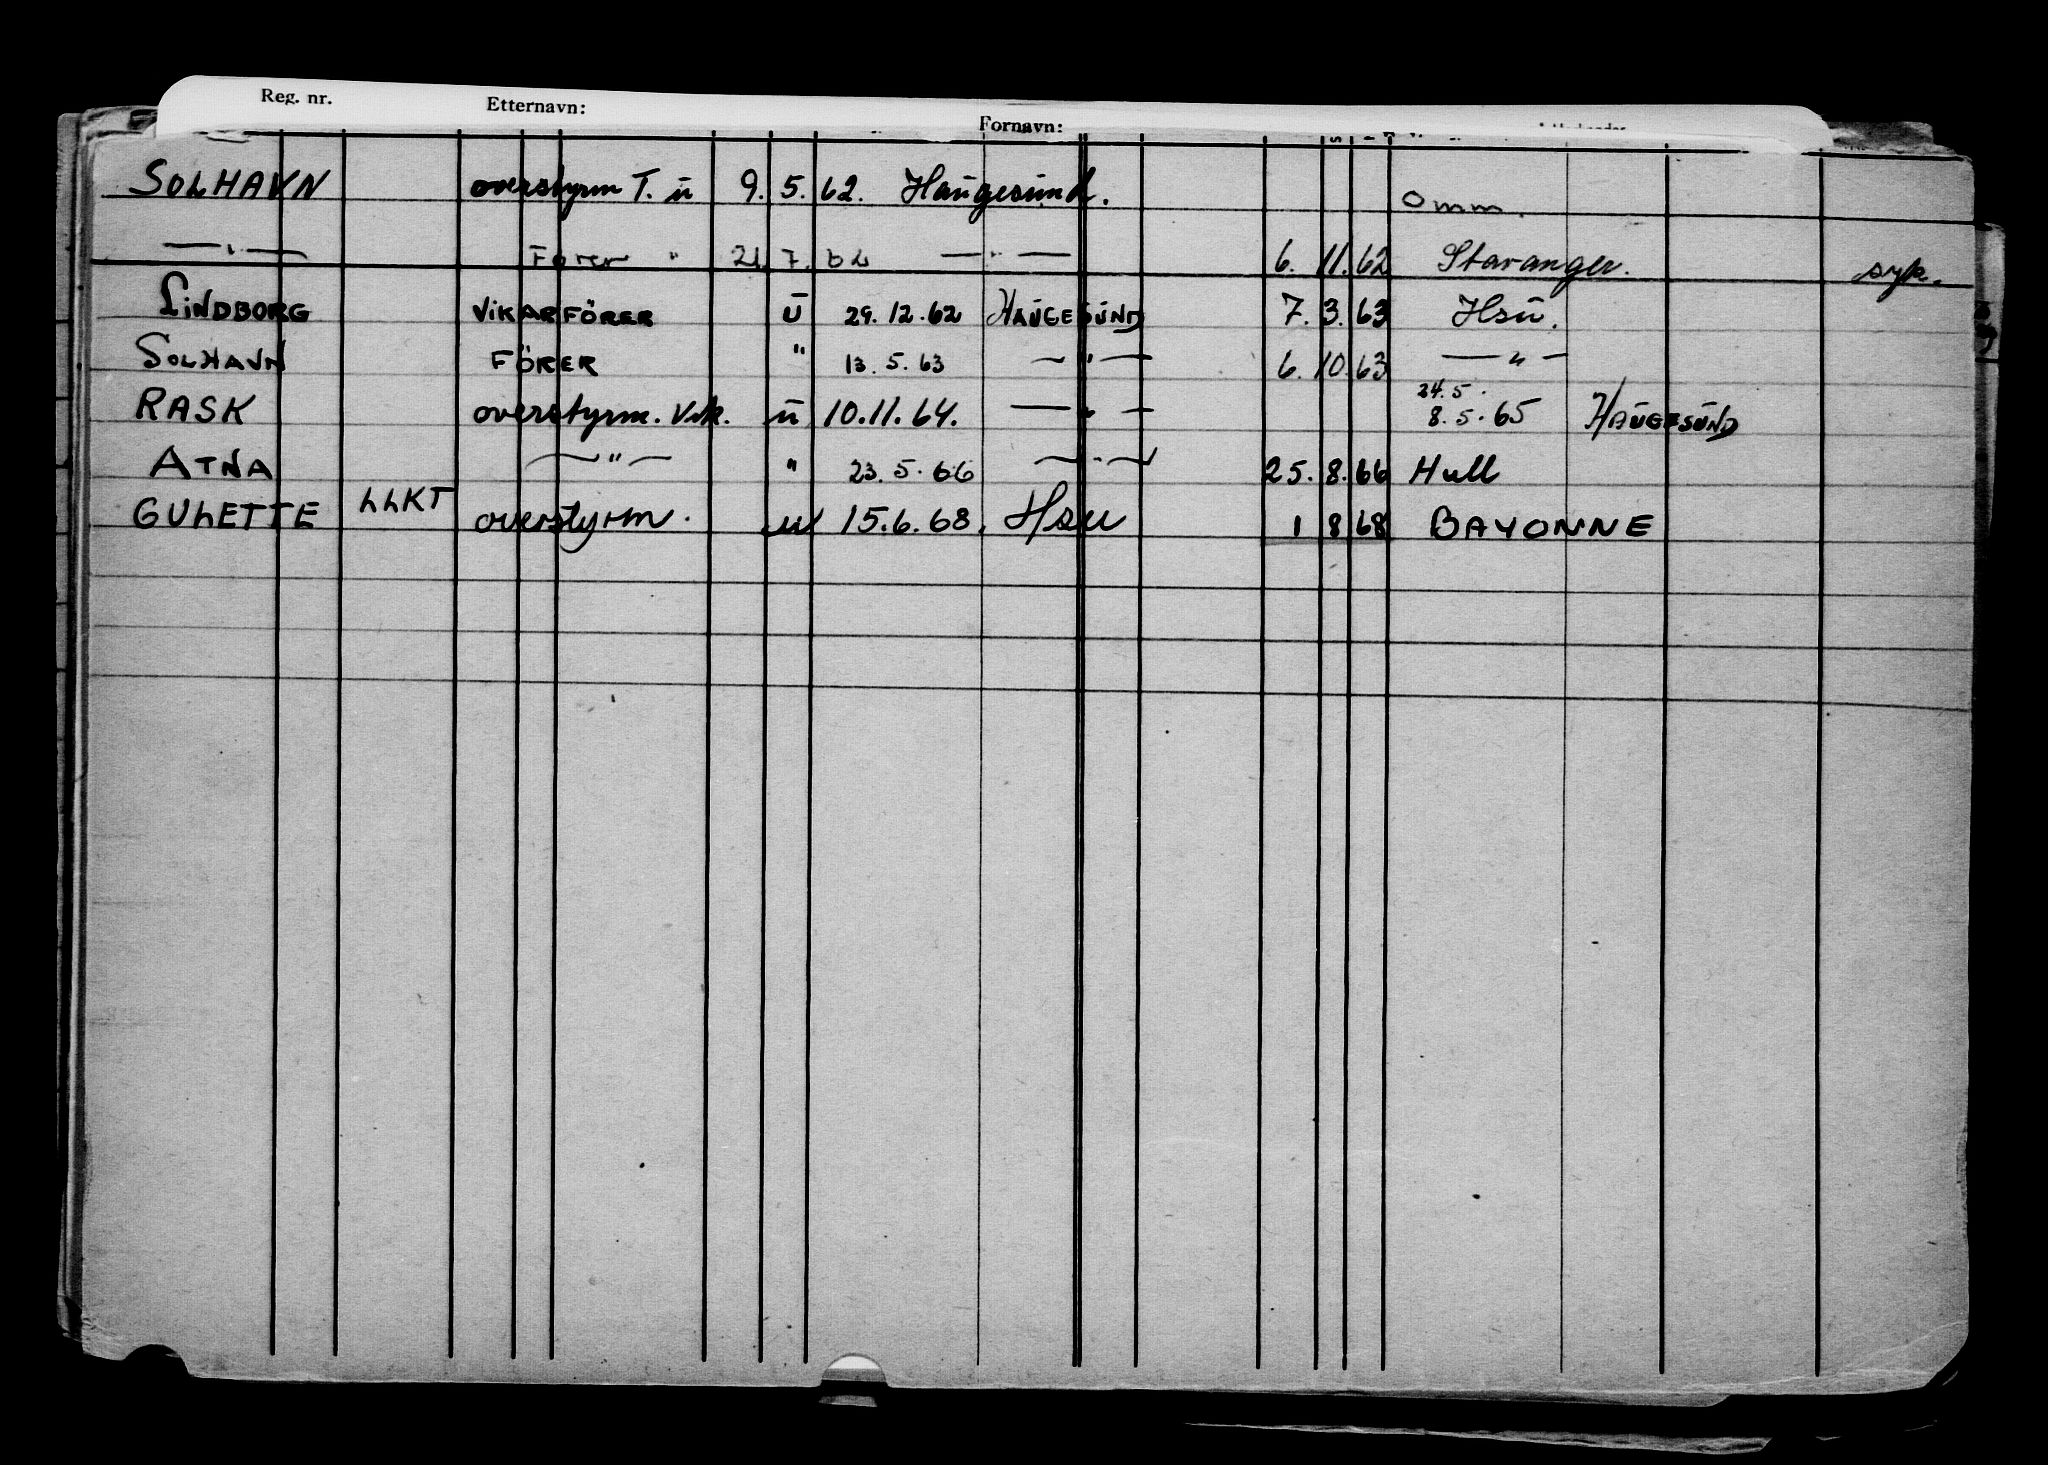 Reg. nr. Etternavn: Fornavn:
SOLHAVN overstyrm T. ū 9. 5. 62. Haugesund. omm.
—"— Fører " 21. 7. 62 —"— 6. 11. 62 Stavanger. syk.
LINDBORG VIKARFÖRER Ū 29.12.62 HAUGESUND 7. 3. 63 Hsū.
SOLHAVN FÖRER " 13.5.63 —"— 6. 10. 63 —"—
24.5.
RASK overstyrm. Vik. ū 10.11.64. —"— 8.5.65 HAUGESUND
ATNA —"— " 23.5.66 —"— 25. 8. 66 Hull
GULETTE LLKT overstyrm. u 15.6.68. Hsu 1 8 68 BAYONNE